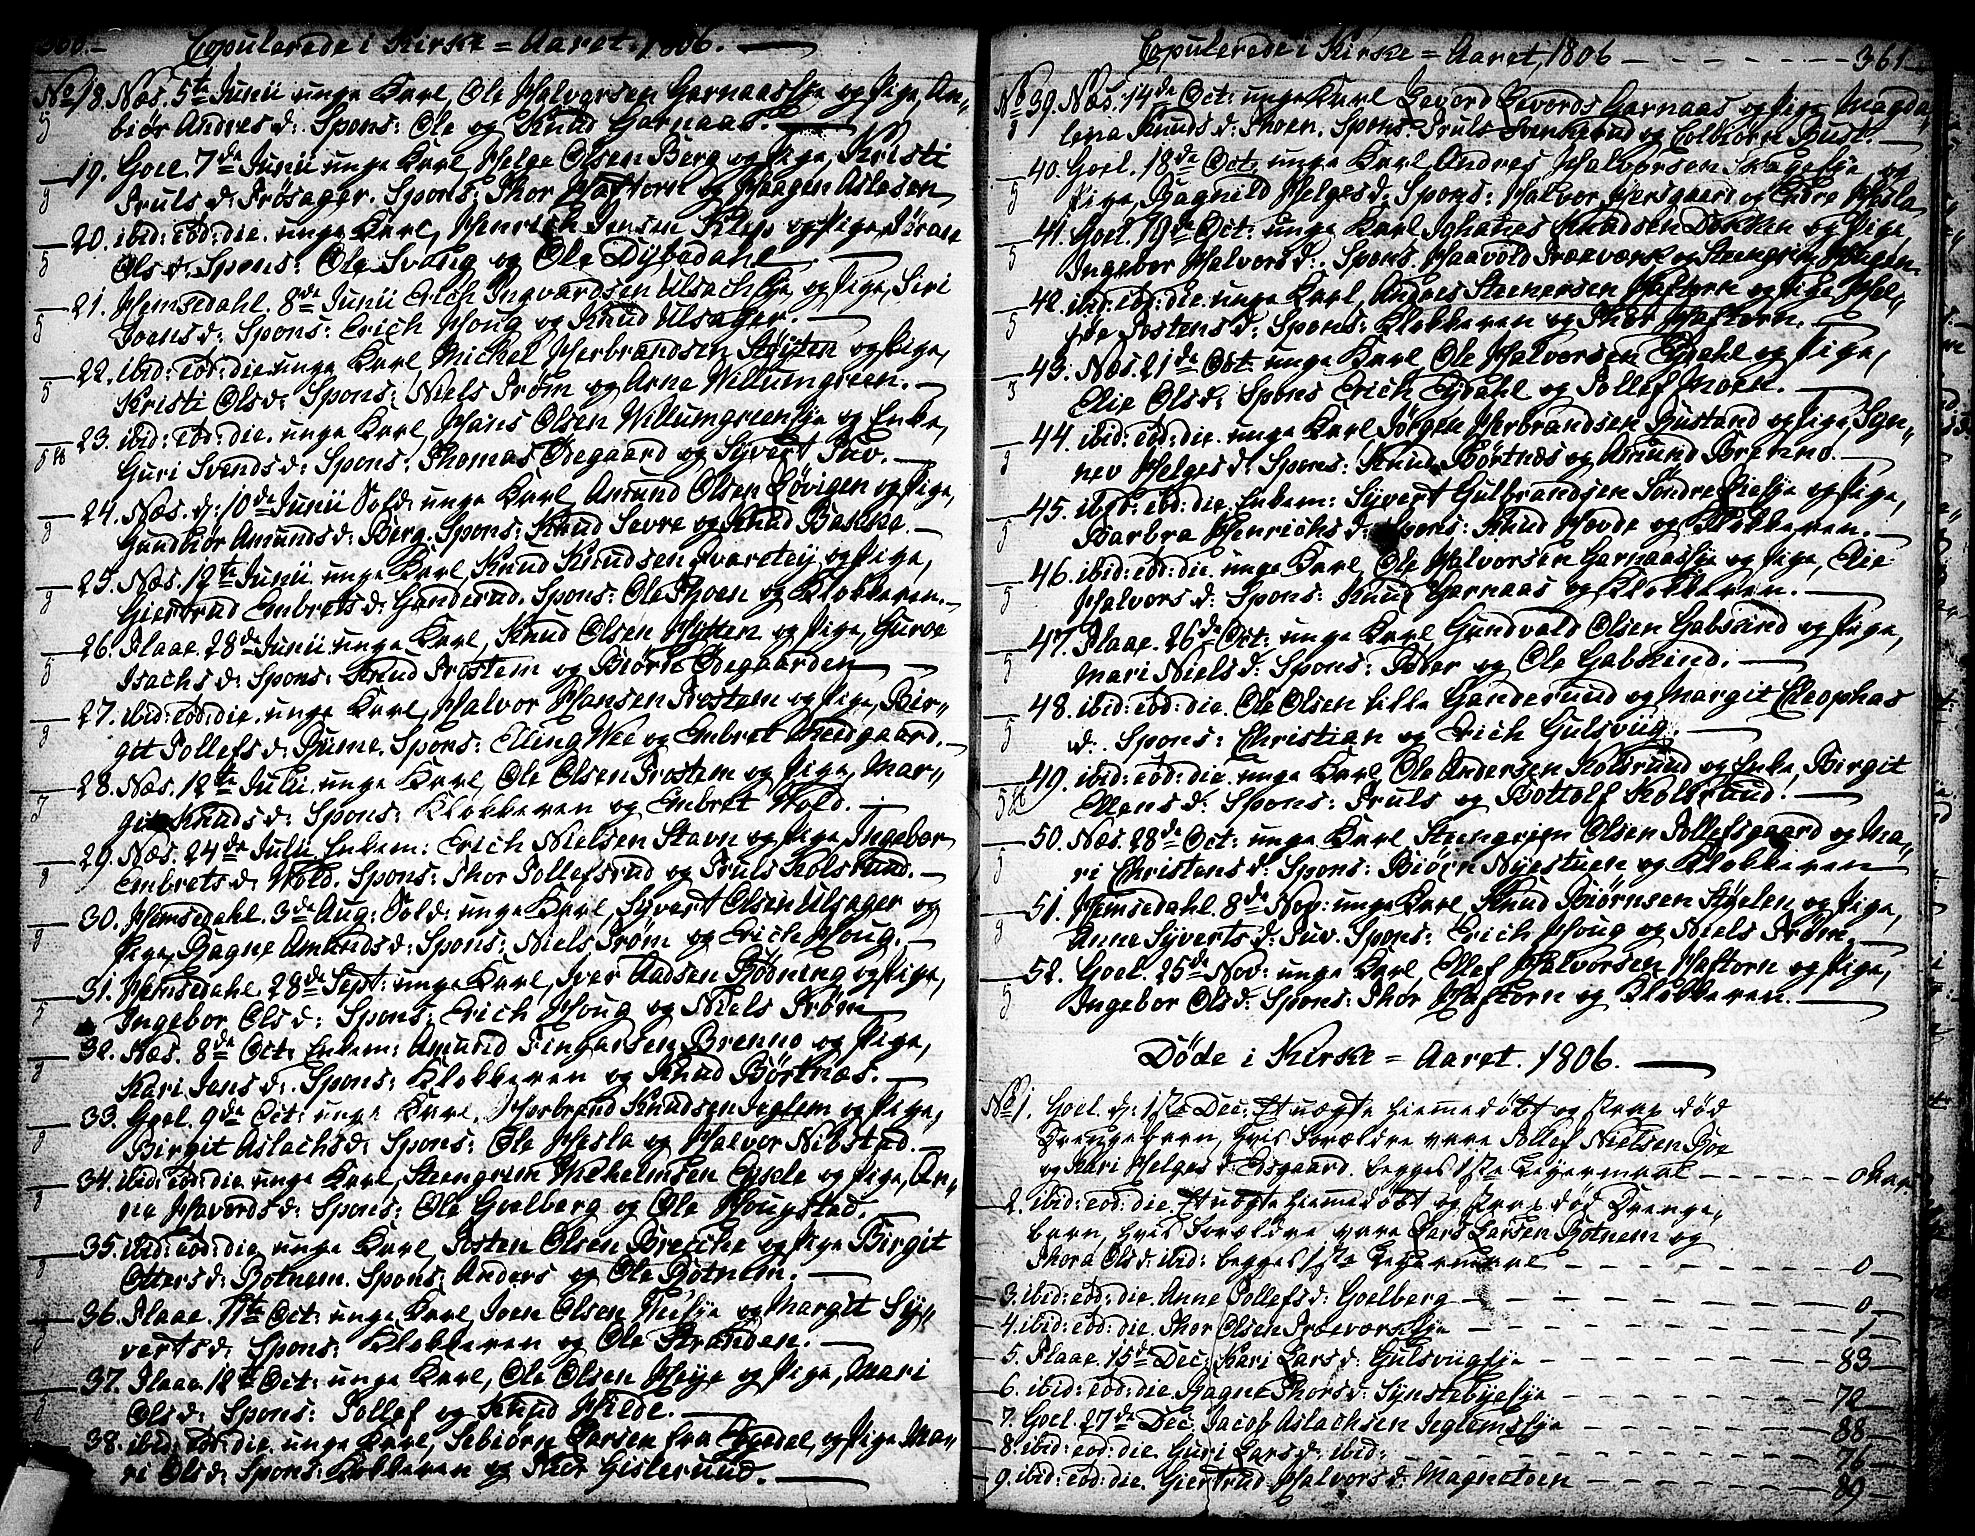 360.
Copulerede i Kirke = Aaret. 1806.
No 18. Næs. 5te Junii unge Karl, Ole Halvorsen Garnaas Eje og Pige, An„
biør Andres d: Spons: Ole og Knud Garnaas.
19. Goel. 7de Junii unge Karl, Helge Olsen Berg og Pige, Kristi
Truls d: Trøsager. Spons: Thor Haftorn og Haagen Aslesen
20. ibid: eod: die. unge Karl, Henrich Jensen Klejs og Pige, Jøran
Ols d: Spons: Ole Svang og Ole Dybedahl
21. Hemsedahl. 8de Junii Erich Ingvardsen Ulsach Eje og Pige, Siri
Joens d: Spons: Erich Houg og Knud Ulsager.
22. ibid: eod: die. unge Karl Michel Herbrandsen Støyten og Pige,
Kristi Ols d: Spons: Niels Trøm og Arne Villumgreen.
23. ibid: eod: die. unge Karl, Hans Olsen Villumgreen Eje og Enke,
Guri Svends d: Spons: Thomas Ødegaard og Syvert Tuv.
24. Næs. d: 10de Junii Sold: unge Karl, Amund Olsen Løvigen og Pige,
Gundbiør Amunds d: Berg. Spons: Knud Sevre og Knud Bakke.
25. Næs. 12te Junii unge Karl, Knud Knudsen Svartej og Pige,
Giertrud Embrets d: Gunderud. Spons: Ole Thoen og Klokkeren.
26. Flaae. 28de Junii unge Karl, Knud Olsen Hytten og Pige, Guroe
Isachs d: Spons: Knud Trostem og Biørn Ødegaarden
27. ibid: eod: die. unge Karl, Halvor Hansen Trostem og Pige, Bir„
git Tollefs d: Rume. Spons: Elling Wee og Embret Knedgaard.
28. Næs. 12te Julii unge Karl, Ole Olsen Trostem og Pige, Mar„
git Knuds d: Spons: Klokkeren og Embret Wold.
29. Næs. 24de Julii Enkem: Erich Nielsen Stavn og Pige, Ingebor
Embrets d: Wold. Spons: Thor Tollefsrud og Truls Kolsrud.
30. Hemsedahl. 3de Aug: Sold: unge Karl, Syvert Olsen Ulsager og
Pige, Ragne Amunds d: Spons: Niels Trøm og Erich Houg.
31. Hemsedahl. 28de Sept: unge Karl, Iver Aadsen Rødning og Pige,
Ingebor Ols d: Spons: Erich Houg og Niels Trøm
32. Næs. 8de Oct: Enkem: Amund Fingarsen Brenno og Pige,
Kari Jens d: Spons: Klokkeren og Knud Børtnæs.
33. Goel. 9de Oct: unge Karl, Herbrand Knudsen Jeglem og Pige,
Birgit Aslachs d: Spons: Ole Hesla og Halvor Nibstad.
34. ibid: eod: die. unge Karl, Steengrim Wilhelmsen Eysele og Pige, An„
ne Havords d: Spons: Ole Goelberg og Ole Hougstad.
35. ibid: eod: die. unge Karl, Josten Olsen Brecke og Pige Birgit
Otters d: Botnem. Spons: Anders og Ole Botnem.
36. Flaae. 11te Oct: unge Karl, Joen Olsen og Margit Sy„
verts d: Spons: Klokkeren og Ole Stranden.
37. Flaae. 12te Oct: unge Karl, Ole Olsen Heye og Pige, Mari
Ols d: Spons: Tollef og Knud Hilde.
38. ibid: eod: die. unge Karl, Sebiørn Larsen fra og Pige Ma„
ri Ols d: Spons: Klokkeren og Thor Gislerud.
Copulerede i Kirke = Aaret, 1806 361.
No 39. Næs. 14de Oct: unge Karl Levord Levords Garnaas og Pige Magda„
lena Knuds d: Thoen. Spons: Truls Svenkerud og Colbiørn Rust.
40. Goel. 18de Oct: unge Karl Andres Halvorsen Skage Eje og
Pige, Ragnild Helges d: Spons: Halvor Hersgaard og Endre Hesla
41. Goel. 19de Oct: unge Karl Johanes Knudsen Dokken og Pige,
Ingebor Halvors d: Spons: Haavold Træeværk og Steengrim Hougen.
42. ibid: eod: die. unge Karl, Andres Steenersen Haftorn og Pige Hel„
je Jostens d: Spons: Klokkeren og Thor Haftorn.
43. Næs. 21de Oct: unge Karl, Ole Halvorsen Eydahl og Pige,
Elie Ols d: Spons Erich Eydahl og Tollef Moen.
44. ibid: eod: die. unge Karl Jørgen Herbrandsen Rustand og Pige, Syn„
nev Helges d: Spons: Knud Børtnæs og Amund Brenno.
45. ibid: eod: die. Enkem: Syvert Gulbrandsen Søndre Lie Eje og Pige,
Barbra Henrichs d: Spons: Knud Hovde og Klokkeren.
46. ibid: eod: die. unge Karl, Ole Halvorsen Garnaas Eje og Pige, Elie
Halvors d: Spons: Knud Garnaas og Klokkeren.
47. Flaae. 26de Oct: unge Karl Gundvald Olsen Gabsund og Pige,
Mari Niels d: Spons: Peder og Ole Gabskind.
48. ibid: eod: die. Ole Olsen lille Ganderuud og Margit Cleophas
d: Spons: Christian og Erich Gulsviig.
49. ibid: eod: die. unge Karl, Ole Andersen Kolsruud og Enke, Birgit
Ellens d: Spons: Truls og Bottolf Kolsruud.
50. Næs. 28de Oct: unge Karl Steengrim Olsen Tollefsgaard og Ma„
ri Christens d: Spons: Biørn Nyestuen og Klokkeren
51. Hemsedahl. 8de Nov: unge Karl, Knud Biørnsen Støelen og Pige,
Anne Syverts d: Tuv. Spons: Erich Houg og Niels Trøm.
52. Goel. 25de Nov: unge Karl, Ellef Halvorsen Haftorn og Pige,
Ingebor Ols d: Spons: Thor Haftorn og Klokkeren.
Døde i Kirke = Aaret. 1806.
No 1. Goel. d: 1ste Dec: Et uægte hiemedøbt og strax død
Drengebarn, hvis Forældre vare Tollef Nielsen Roe
og Kari Helges d: Lisgaard. begges 1ste Lejermaal 0 Aar.
2. ibid: eod: die. Et uægte hiemedøbt og strax død Drenge„
barn, hvis Forældre vare Lars Larsen Botnem og
Thora Ols d: ibid: begges 1ste Lejermaal 0
3. ibid: eod: die. Anne Tollefs d: Goelberg 0
4. ibid: eod: die. Thor Olsen Træevorks Eje 1
5. Flaae. 15de Dec: Kari Lars d: Gulsviig Eje 83
6. ibid: eod: die. Ragne Thors d: Synstebye Eje 72
7. Goel. 27de Dec: Jacob Aslachsen Jeglems Eje 88
8. ibid: eod: die. Guri Lars d: ibid: 76
9. ibid: eod: die. Giertrud Halvors d: Magnetoen 89